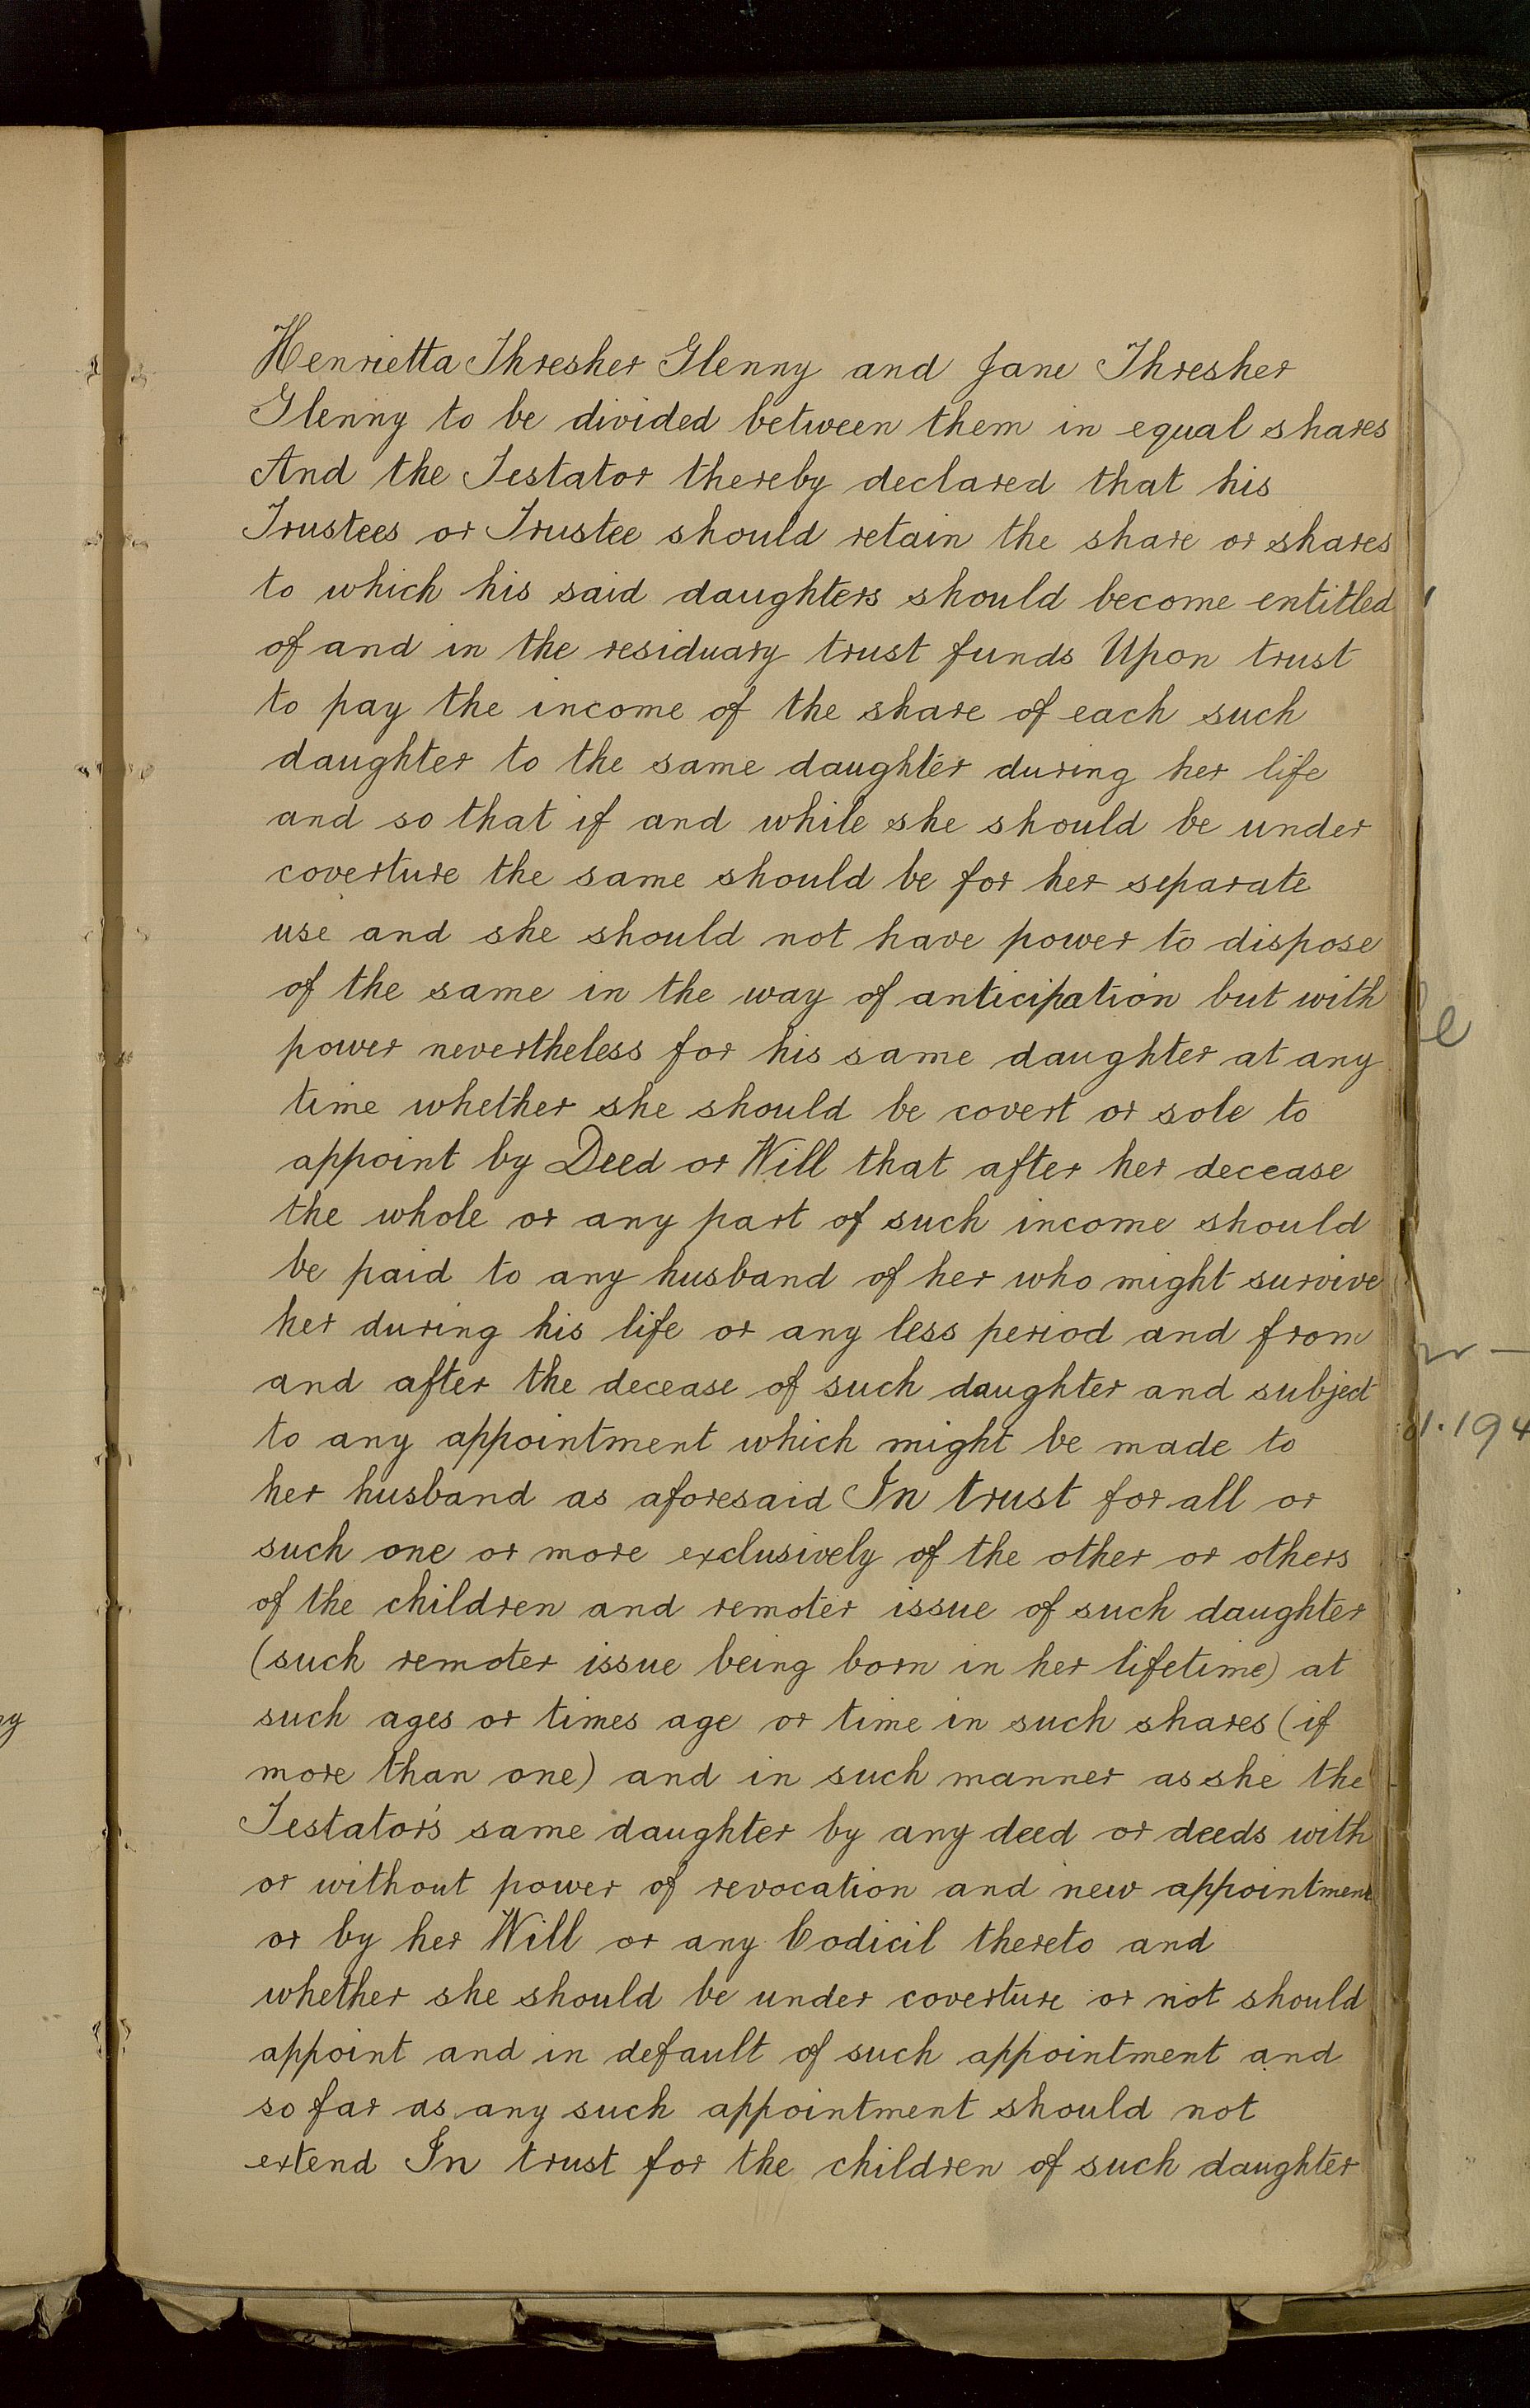 Henrietta Thresher Glenny and Jane Thresher
Glenny to be divided between them in equal shares
And the Testator thereby declared that his
Trustees or Trustee should retain the share or shares
to which his said daughters should become entitled
of and in the residuary trust funds Upon trust
to pay the income of the share of each such
daughter to the same daughter during her life
and so that if and while she should be under
coverture the same should be for her separate
use and she should not have power to dispose
of the same in the way of anticipation but with
power nevertheless for his same daughter at any
time whether she should be covert or sole to
appoint by Deed or Will that after her decease
the whole or any part of such income should
be paid to any husband of her who might survive
her during his life or any less period and from
and after the decease of such daughter and subject
to any appointment which might be made to
her husband as aforesaid In trust for all or
such one or more exclusively of the other or others
of the children and remoter issue of such daughter
(such remoter issue being born in her lifetime) at
such ages or times age or time in such shares (if
more than one) and in such manner as she the
Testator's same daughter by any deed or deeds with
or without power of revocation and new appointment
or by her Will or any Codicil thereto and
whether she should be under coverture or not should
appoint and in default of such appointment and
so far as any such appointment should not
extend In trust for the children of such daughter